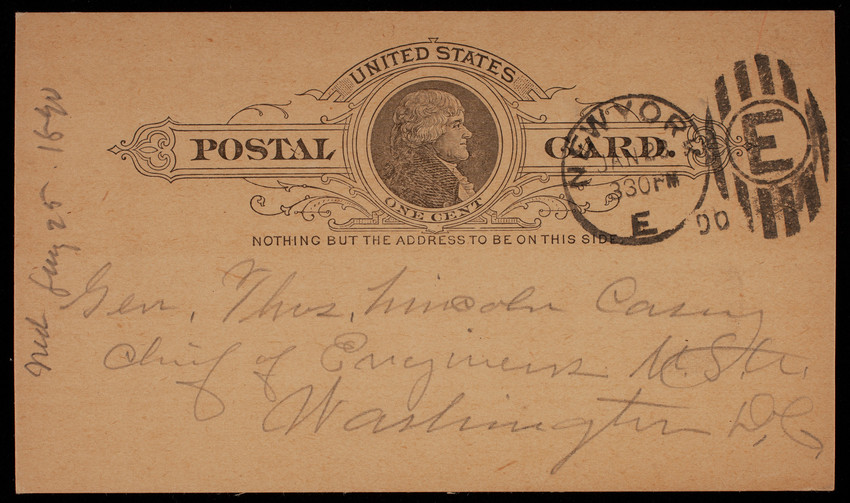 UNITED STATES
POSTAL CARD.
ONE CENT
NOTHING BUT THE ADDRESS TO BE ON THIS SIDE
NEW YORK
JAN
330PM
E
E
DO
Gen. Thos. Lincoln Casey
Chief of Engineers U.S.A.
Washington D.C.
25. 1890